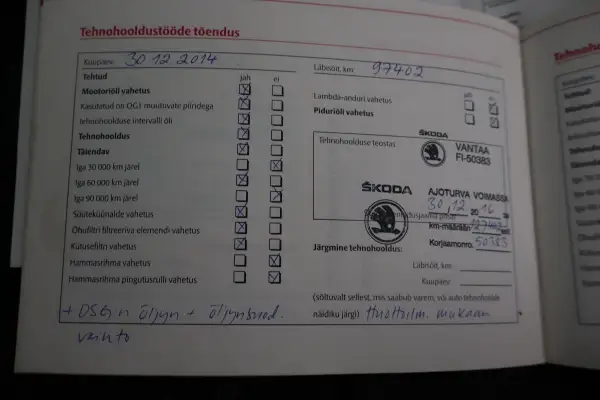 Tehnohooldustööde tõendus
Kuupäev: 30 12 2014
Läbisõit, km 97402
Tehtud jah ei
Mootoriõli vahetus
Kasutatud on QG1 muutuvate piiridega
Tehnohoolduse intervalli õli
Tehnohooldus
Täiendav
Iga 30 000 km järel
Iga 60 000 km järel
Iga 90 000 km järel
Süüteküünalde vahetus
Õhufiltri filtreeriva elemendi vahetus
Kütusefiltri vahetus
Hammasrihma vahetus
Hammasrihma pingutusrulli vahetus
jah ei
Lambda-anduri vahetus
Piduriõli vahetus
Tehnohoolduse teostas
ŠKODA
VANTAA
FI-50383
ŠKODA
AJOTURVA VOIMASSA
30.12.2016
km-määrään
Korjaamonro. 50383
Järgmine tehnohooldus:
Läbisõit, km
Kuupäev
(sõltuvalt sellest, mis saabub varem, või auto tehnohoolde
näidiku järgi) Huoltoilm. mukaan
+ DSG:n öljyn + öljynsuod.
vaihto